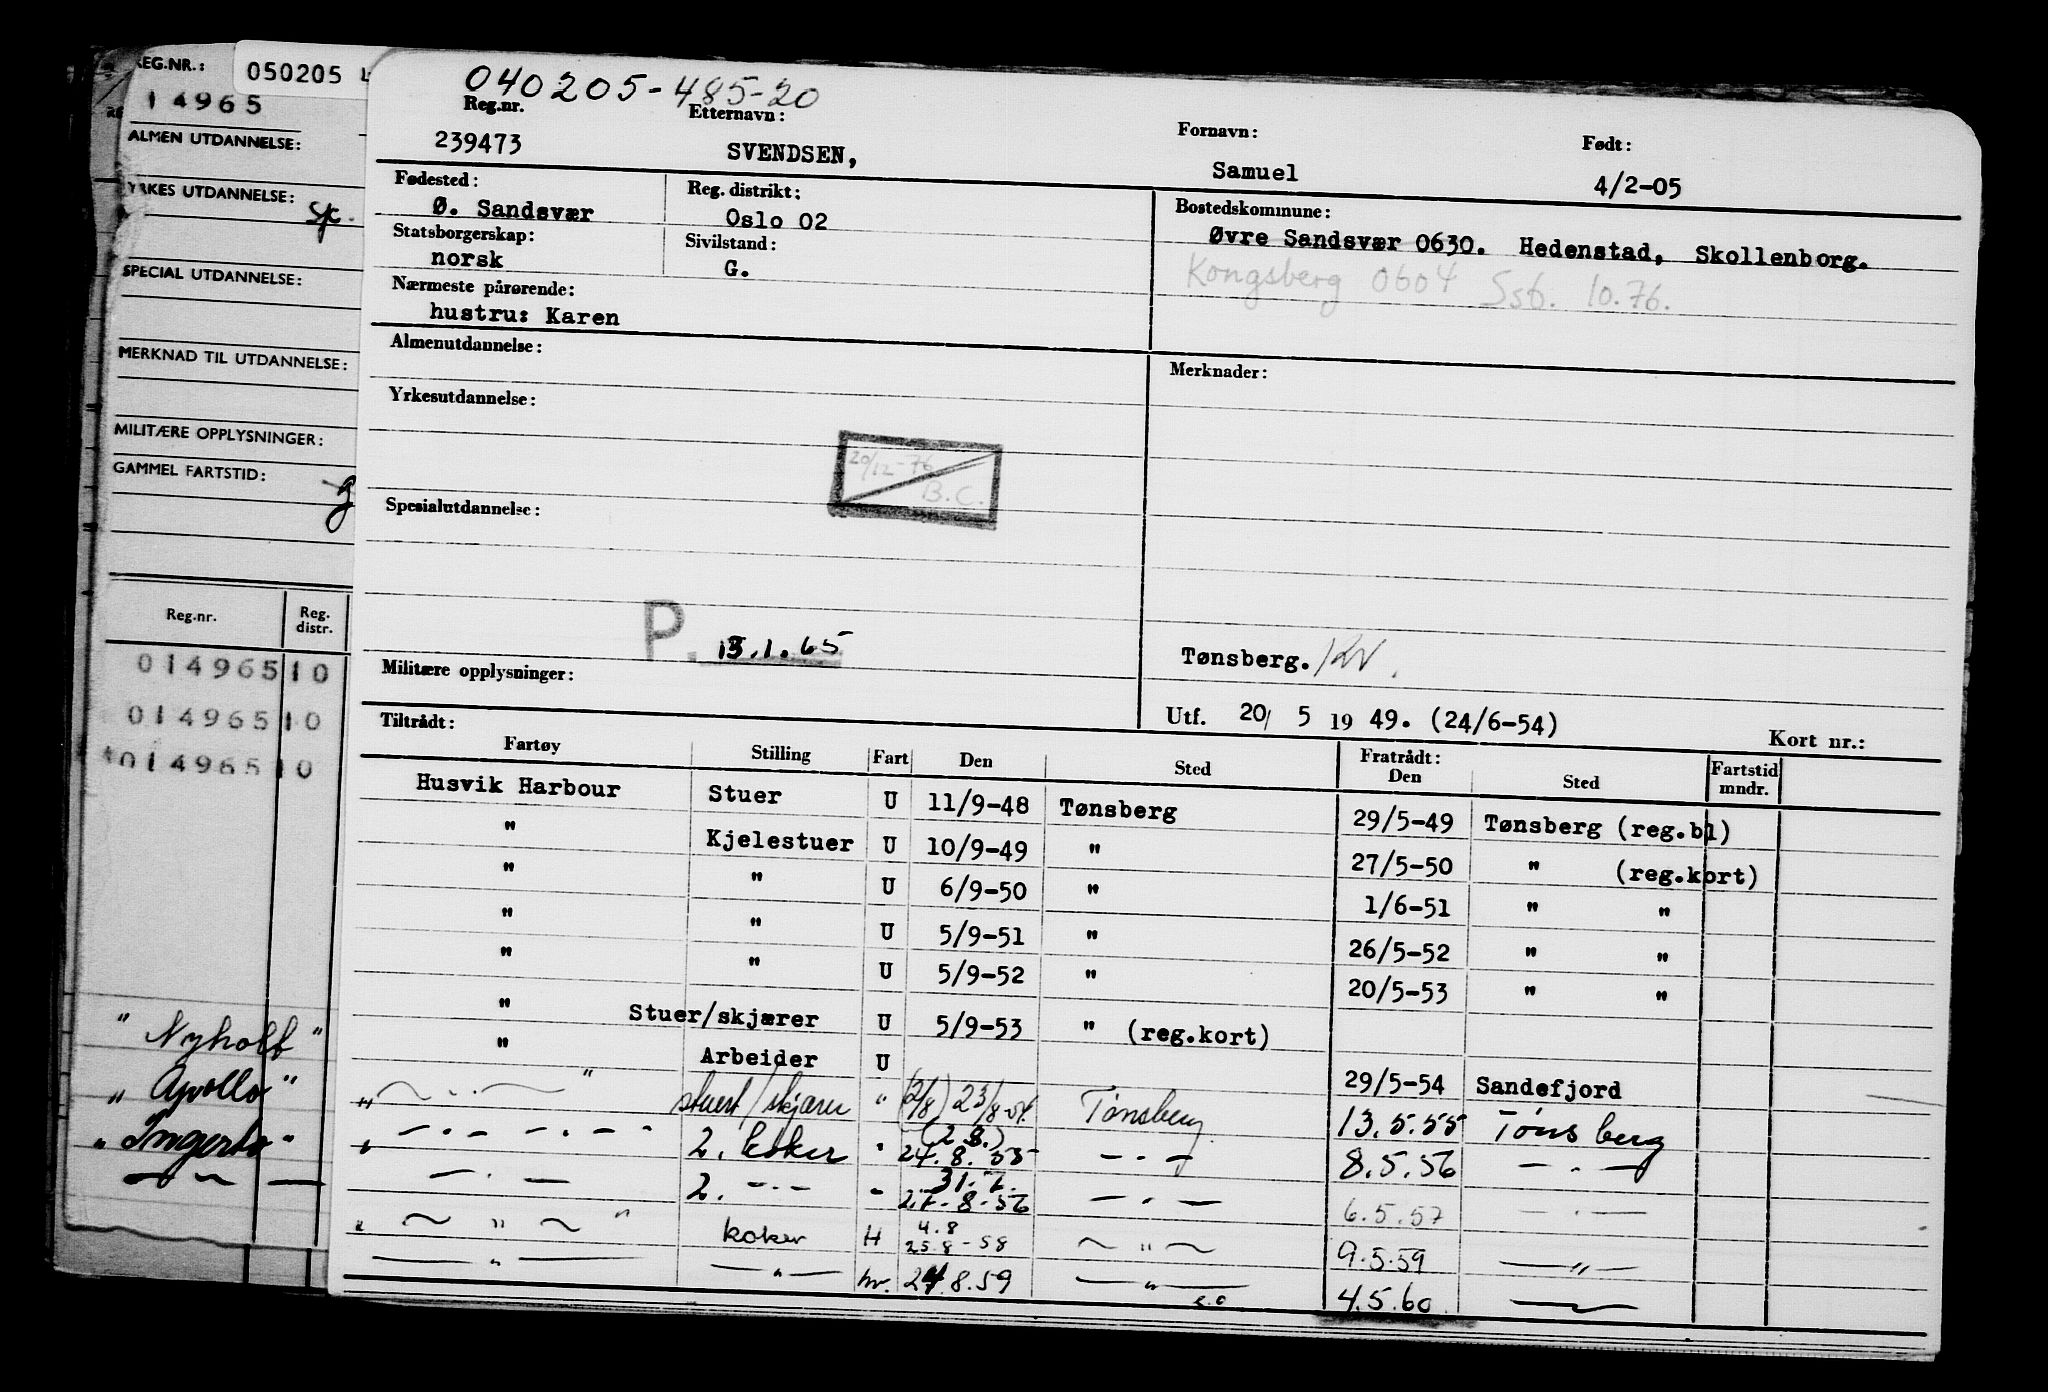 REG.NR.:
050205
14965
ALMEN UTDANNELSE:
YRKES UTDANNELSE:
SPECIAL UTDANNELSE:
MERKNAD TIL UTDANNELSE:
MILITÆRE OPPLYSNINGER:
GAMMEL FARTSTID:
Reg.nr. Reg. distr.
014965 10
014965 10
014965 10
" Nyholt "
" Apollo "
" Ingerto "
040205-485-20
Reg.nr. Etternavn: Fornavn: Født:
239473 SVENDSEN, Samuel 4/2-05
Fødested: Reg. distrikt: Bostedskommune:
Ø. Sandsvær Oslo 02 Øvre Sandsvær 0630. Hedenstad, Skollenborg.
Statsborgerskap: Sivilstand:
norsk G. Kongsberg 0604 Ssb. 10.76.
Nærmeste pårørende:
hustru: Karen
Almenutdannelse: Merknader:
Yrkesutdannelse:
20/12-76
B.C.
Spesialutdannelse:
P. 13.1.65
Tønsberg.
Militære opplysninger:
Utf. 20/ 5 19 49. (24/6-54) Kort nr.:
Tiltrådt: Fratrådt:
Fartøy Stilling Fart Den Sted Den Sted Fartstid mndr.
Husvik Harbour Stuer U 11/9-48 Tønsberg 29/5-49 Tønsberg (reg.bl)
" Kjelestuer U 10/9-49 " 27/5-50 " (reg.kort)
" " U 6/9-50 " 1/6-51 " "
" " U 5/9-51 " 26/5-52 " "
" " U 5/9-52 " 20/5-53 " "
" Stuer/skjærer U 5/9-53 " (reg.kort)
" Arbeider U 29/5-54 Sandefjord
" — . — " stuert/skjærer " (2/8) 23/8-54. Tønsberg 13.5.55 Tønsberg
" — . — . — " 2. koker " (2.8.) 24.8.55 — . — 8.5.56 — . —
— . — 2. — . — " 27-8-56 — . — 6.5.57 — . —
" — " — " koker H 4.8 25.8-58 — " — 9.5.59 — " —
— " — — " — hv. 24.8.59 — " — 4.5.60 —